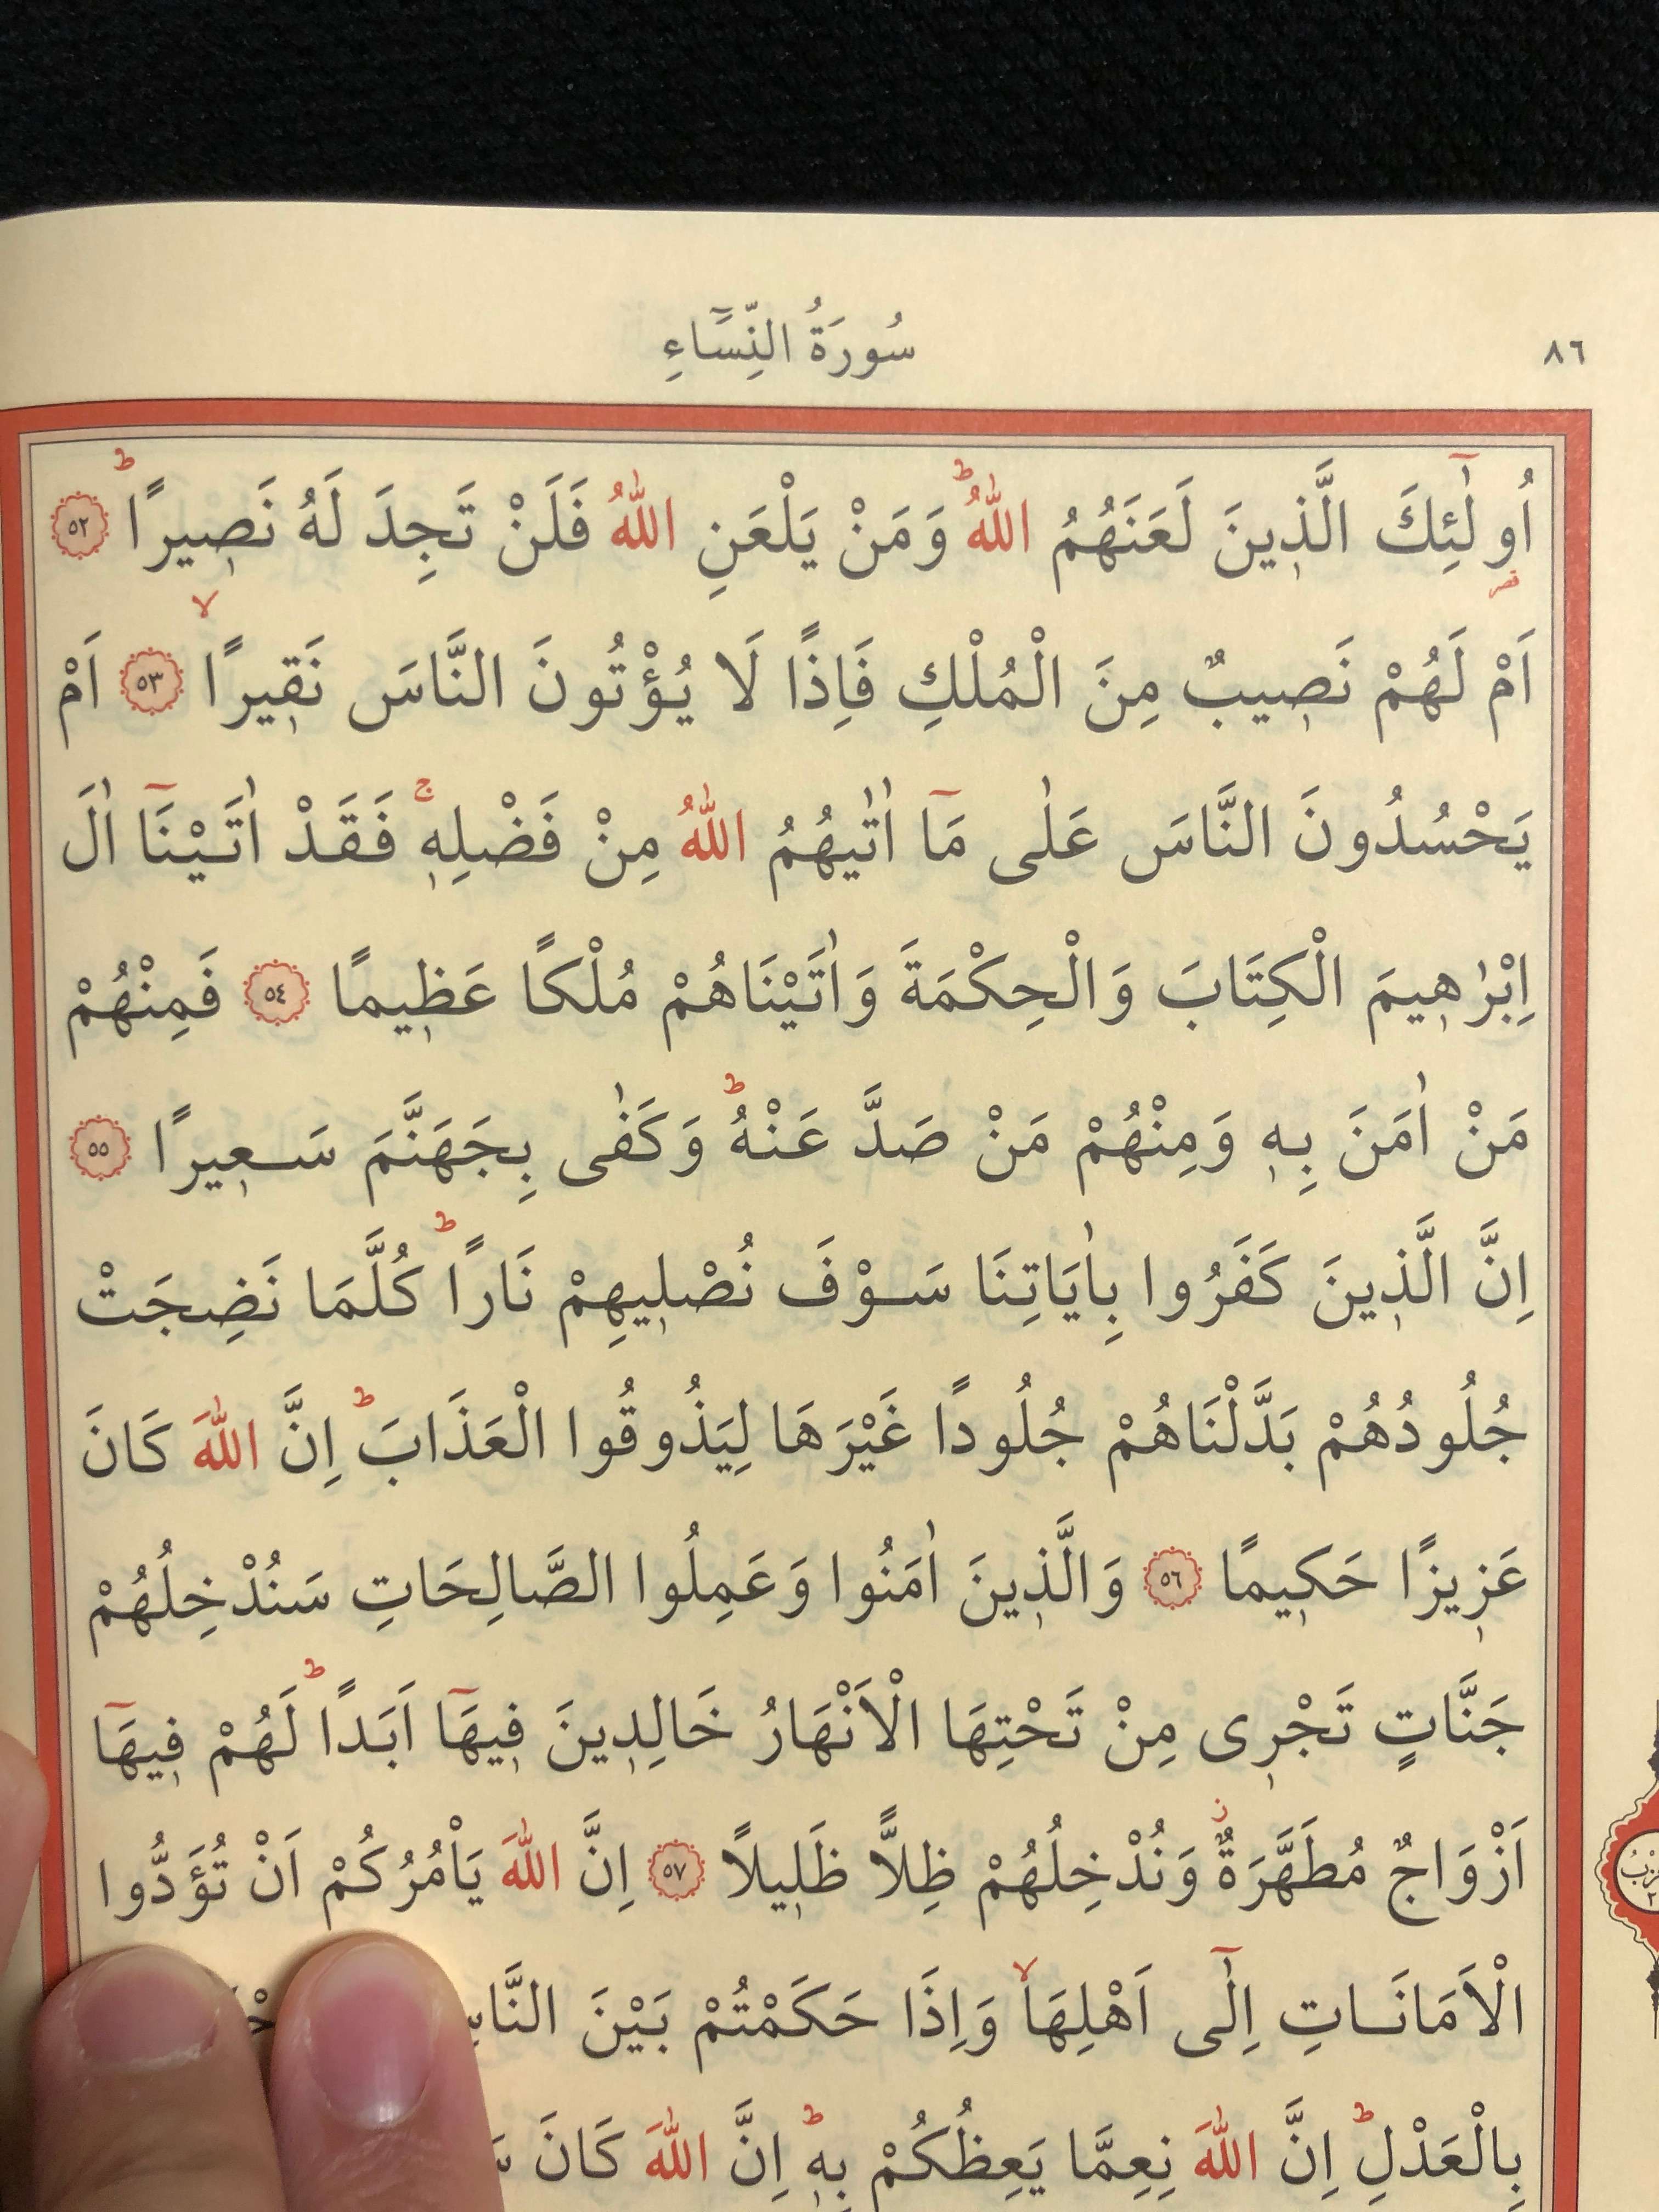 ٨٦
سُورَةُ النِّسَٓاءِ
اُو۬لٰٓئِكَ الَّذ۪ينَ لَعَنَهُمُ اللّٰهُۜ وَمَنْ يَلْعَنِ اللّٰهُ فَلَنْ تَجِدَ لَهُ نَص۪يرًاۜ ٥٢
اَمْ لَهُمْ نَص۪يبٌ مِنَ الْمُلْكِ فَاِذًا لَا يُؤْتُونَ النَّاسَ نَق۪يرًاۙ ٥٣ اَمْ
يَحْسُدُونَ النَّاسَ عَلٰى مَٓا اٰتٰيهُمُ اللّٰهُ مِنْ فَضْلِه۪ۚ فَقَدْ اٰتَيْنَٓا اٰلَ
اِبْرٰه۪يمَ الْكِتَابَ وَالْحِكْمَةَ وَاٰتَيْنَاهُمْ مُلْكًا عَظ۪يمًا ٥٤ فَمِنْهُمْ
مَنْ اٰمَنَ بِه۪ وَمِنْهُمْ مَنْ صَدَّ عَنْهُۜ وَكَفٰى بِجَهَنَّمَ سَع۪يرًا ٥٥
اِنَّ الَّذ۪ينَ كَفَرُوا بِاٰيَاتِنَا سَوْفَ نُصْل۪يهِمْ نَارًاۜ كُلَّمَا نَضِجَتْ
جُلُودُهُمْ بَدَّلْنَاهُمْ جُلُودًا غَيْرَهَا لِيَذُوقُوا الْعَذَابَۜ اِنَّ اللّٰهَ كَانَ
عَز۪يزًا حَك۪يمًا ٥٦ وَالَّذ۪ينَ اٰمَنُوا وَعَمِلُوا الصَّالِحَاتِ سَنُدْخِلُهُمْ
جَنَّاتٍ تَجْر۪ى مِنْ تَحْتِهَا الْاَنْهَارُ خَالِد۪ينَ ف۪يهَٓا اَبَدًاۜ لَهُمْ ف۪يهَٓا
اَزْوَاجٌ مُطَهَّرَةٌۘ وَنُدْخِلُهُمْ ظِلاًّ ظَل۪يلاً ٥٧ اِنَّ اللّٰهَ يَاْمُرُكُمْ اَنْ تُؤَدُّوا
الْاَمَانَاتِ اِلٰٓى اَهْلِهَاۙ وَاِذَا حَكَمْتُمْ بَيْنَ النَّاسِ
بِالْعَدْلِۜ اِنَّ اللّٰهَ نِعِمَّا يَعِظُكُمْ بِه۪ۜ اِنَّ اللّٰهَ كَانَ